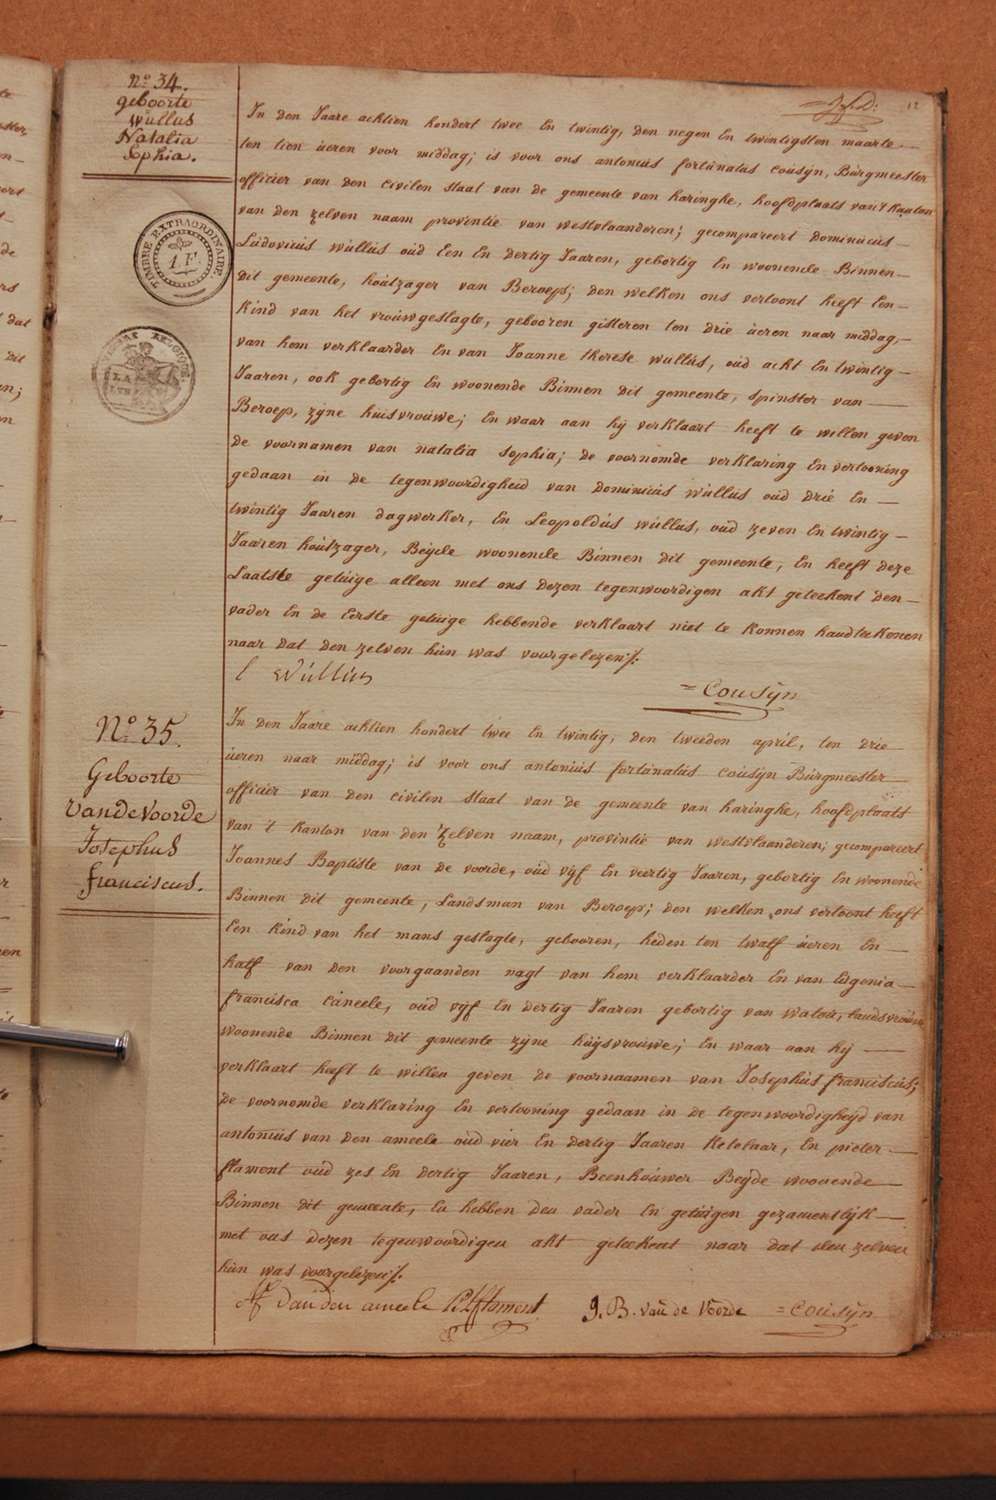 12
N° 34.
geboorte
Wullus
Natalia
Sophia.
TIMBRE EXTRAORDINAIRE.
1 F.
In den Jaare achtien hondert twee En twintig, den negen En twintigsten maarte
ten tien ùeren voor middag; is voor ons antonius fortùnatus coùsÿn, Bùrgmeester
officier van den civilen staat van de gemeente van haringhe, hoofdplaats van 't Kanton
van den zelven naam provintie van westvlaanderen; gecompareert Dominicùs
Lùdovicùs wùllùs oùd Een En dertig Jaaren, gebortig En woonende Binnen
dit gemeente, hoùtzager van Beroep; den welken ons vertoont heeft Een
kind van het vroùwgeslagte, gebooren gisteren ten drie ùeren naar middag,
van hem verklaarder En van Joanne therese wullùs, oùd acht En twintig
Jaaren, ook gebortig En woonende Binnen dit gemeente, spinster van
Beroep, zÿne hùisvroùwe; En waar aan hÿ verklaart heeft te willen geven
de voornamen van natalia sophia; de voornomde verklaring En vertooning
gedaan in de tegenwoordigheid van Dominicùs wùllùs oùd drie En
twintig Jaaren dagwerker, En Leopoldùs wùllùs, oùd zeven En twintig
Jaaren hoùtzager, Beÿde woonende Binnen dit gemeente, En heeft deze
Laatste getùige alleen met ons dezen tegenwoordigen akt geteekent den
vader En de Eerste getùige hebbende verklaart niet te konnen handteekenen
naar dat den zelven hùn was voorgelezen /.
l Wùllùs
= Coùsÿn
N° 35.
Geboorte
Vandevoorde
Josephus
franciscus.
In den Jaare achtien hondert twee En twintig, den tweeden april, ten drie
ùeren naar middag; is voor ons antoniùs fortùnatùs coùsÿn Bùrgmeester
officier van den civilen staat van de gemeente van haringhe, hoofdplaats
van 't kanton van den zelven naam, provintie van westvlaanderen; gecompareert
Joannes Baptiste van de voorde, oùd vÿf En veertig Jaaren, gebortig En woonende
Binnen dit gemeente, Landsman van Beroep; den welken ons vertoont heeft
Een kind van het mans geslagte, gebooren, heden ten twalf ùeren En
half van den voorgaanden nagt van hem verklaarder En van Eùgenia
francisca cáneele, oùd vÿf En dertig Jaaren gebortig van watoù, landsvroùw
woonende Binnen dit gemeente zÿne hùÿsvroùwe; En waar aan hÿ
verklaart heeft te willen geven de voornaamen van Josephùs franciscùs;
de voornomde verklaring En vertooning gedaan in de tegenwoordigheÿd van
antoniùs van den ameele oùd vier En dertig Jaaren Ketelaar, En pieter
flament oùd zes En dertig Jaaren, Beenhoùwer Beÿde woonende
Binnen dit gemeente, En hebben den vader En getùigen gezamentlÿk
met ons dezen tegenwoordigen akt geteekent naar dat den zelven
hùn was voorgelezen /.
Vanden ameele P Flament g. B. van de Voorde = Coùsÿn